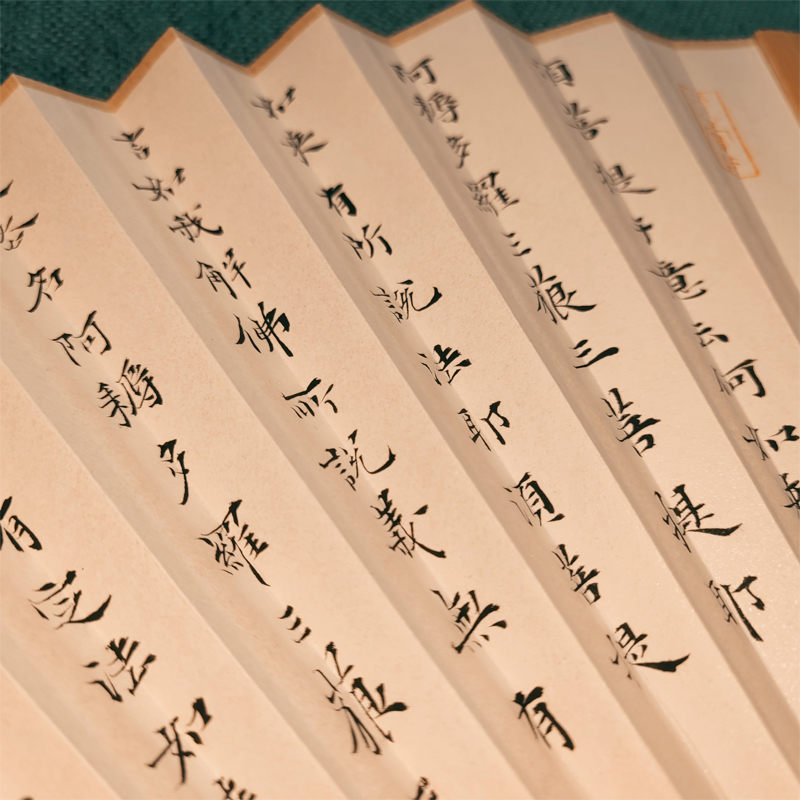 須菩提于意云何如
阿耨多羅三藐三菩提耶
如來有所說法耶須菩提
言如我解佛所說義無有
名阿耨多羅三藐
有定法如